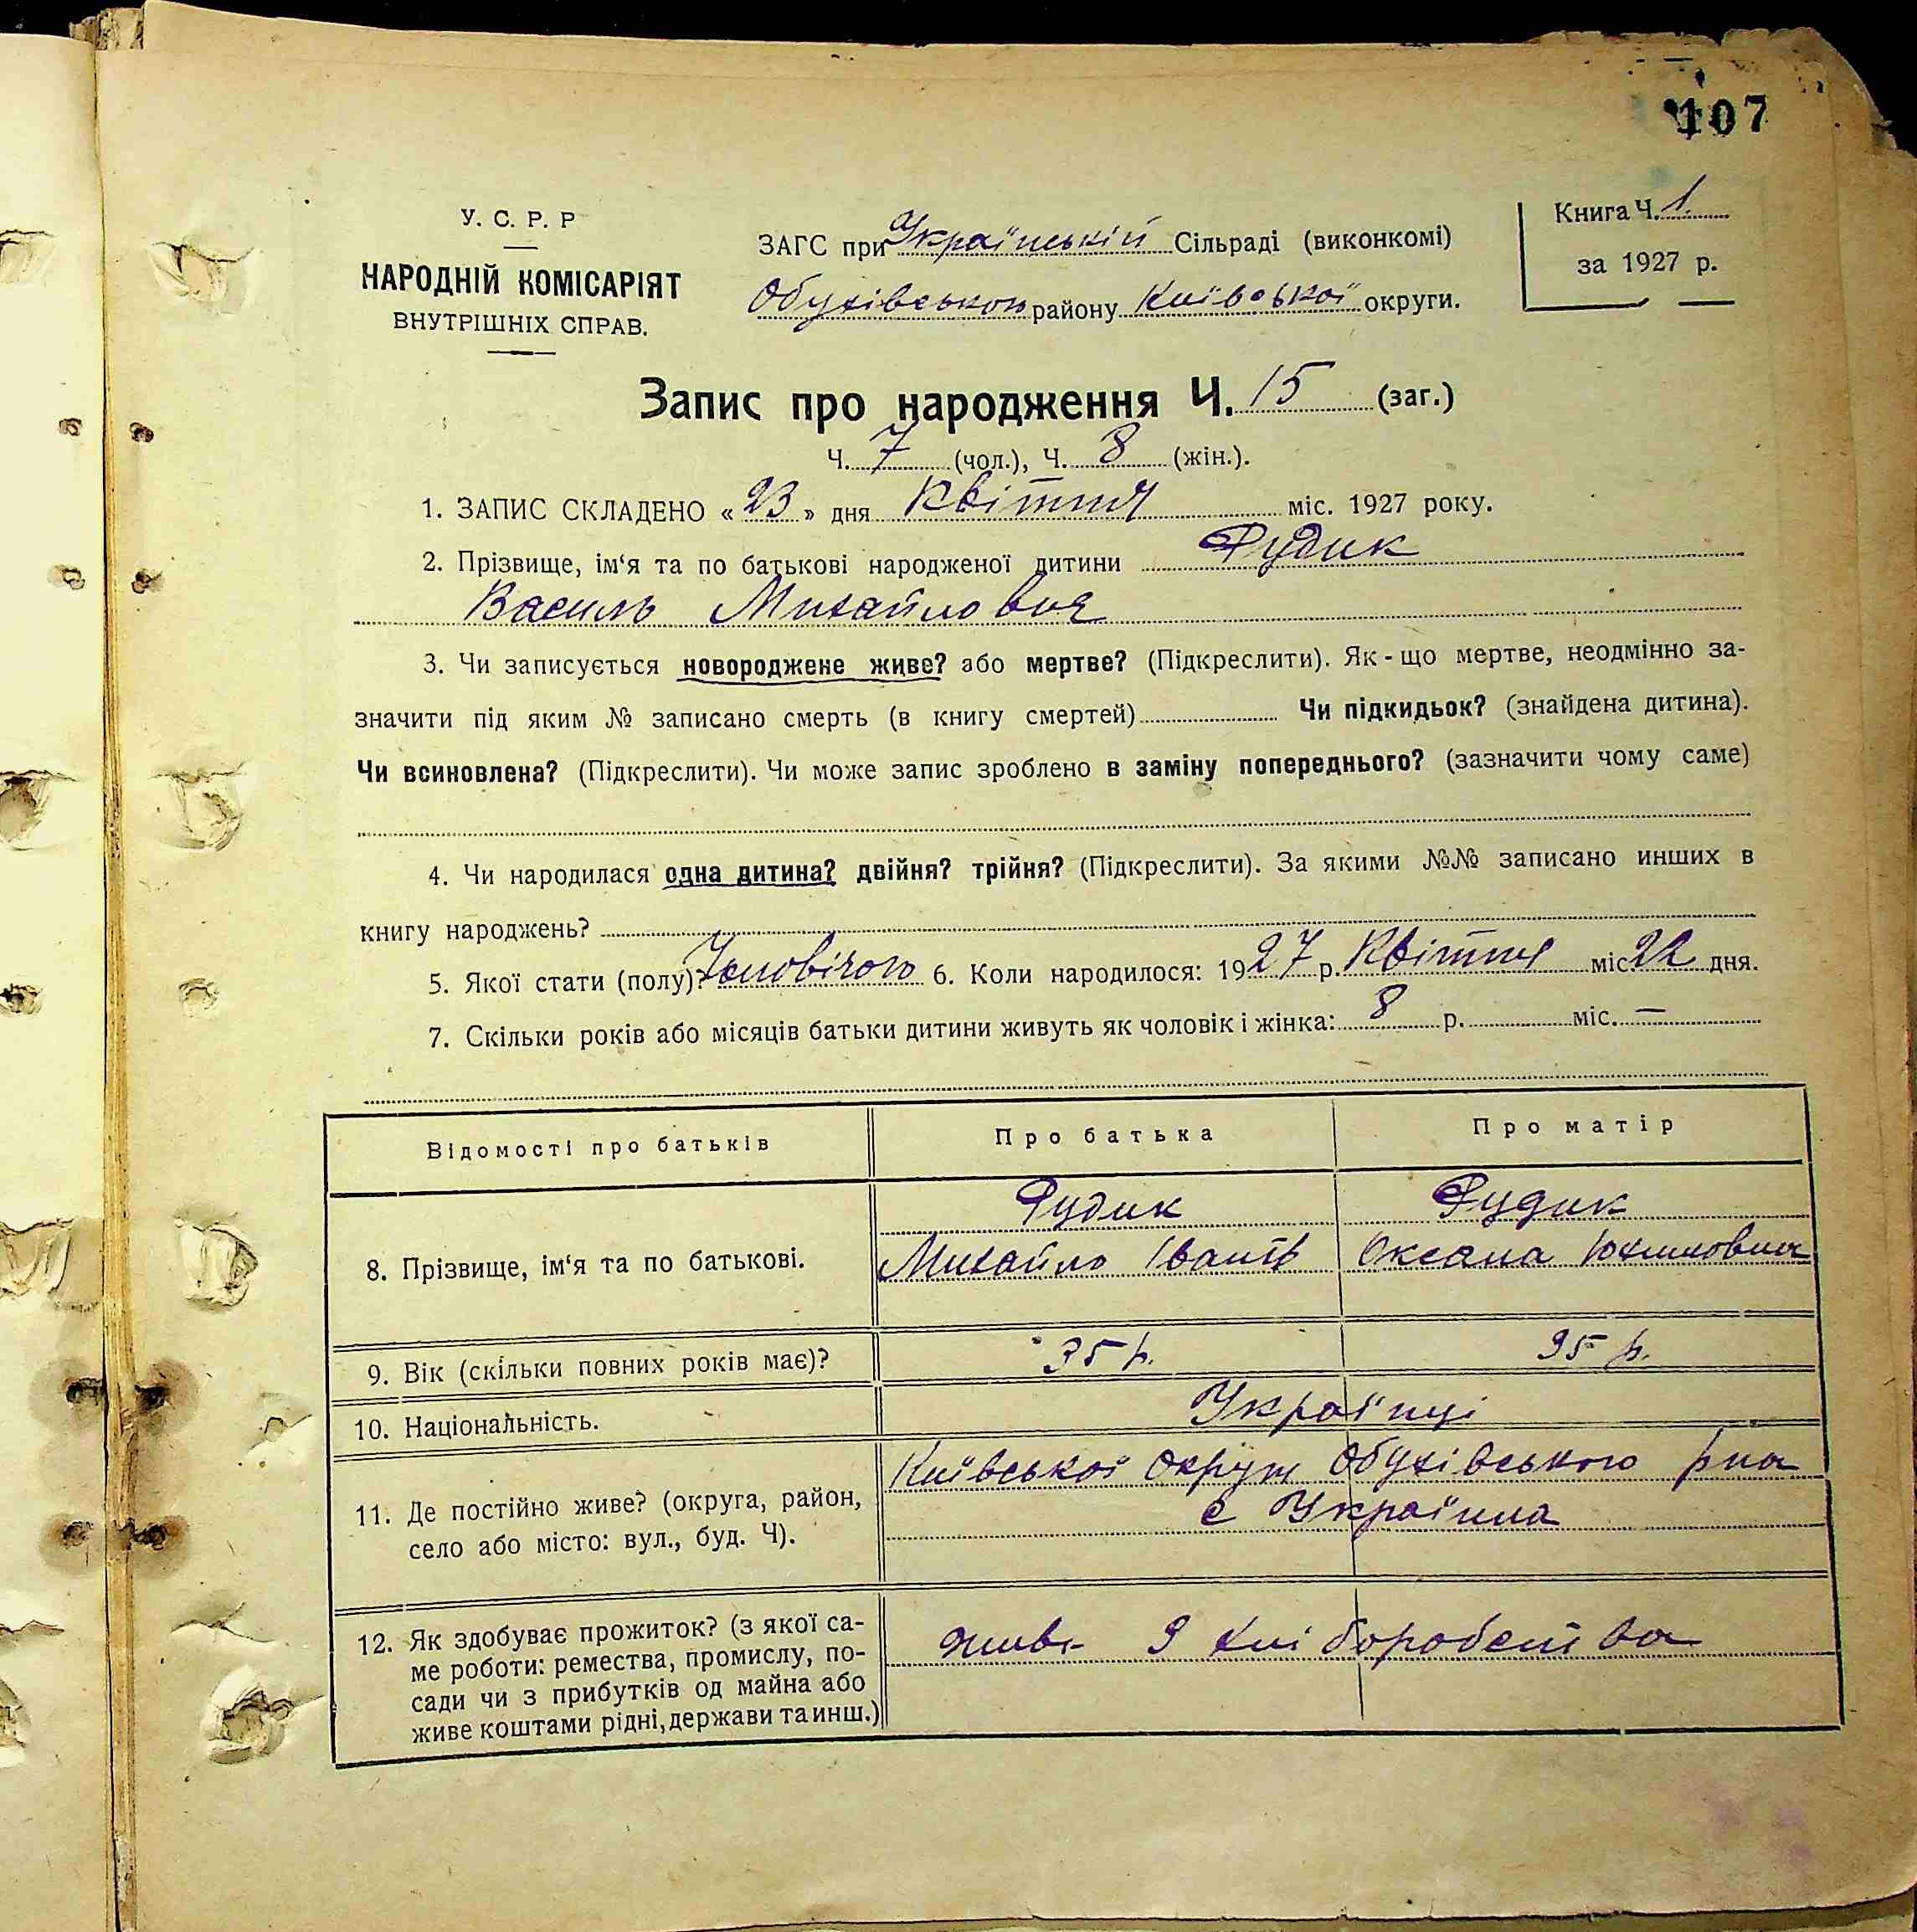 107
У. С. Р. Р
НАРОДНІЙ КОМІСАРІЯТ
ВНУТРІШНІХ СПРАВ.
ЗАГС при Українській Сільраді (виконкомі)
Обухівського району Київської округи.
Книга Ч. 1
за 1927 р.
Запис про народження Ч. 15 (заг.)
Ч. 7 (чол.), Ч. 8 (жін.).
1. ЗАПИС СКЛАДЕНО « 23 » дня Квітня міс. 1927 року.
2. Прізвище, ім‘я та по батькові народженої дитини Рудик
Василь Михайлович
3. Чи записується новороджене живе? або мертве? (Підкреслити). Як-що мертве, неодмінно за-
значити під яким № записано смерть (в книгу смертей) Чи підкидьок? (знайдена дитина).
Чи всиновлена? (Підкреслити). Чи може запис зроблено в заміну попереднього? (зазначити чому саме)
4. Чи народилася одна дитина? двійня? трійня? (Підкреслити). За якими №№ записано инших в
книгу народжень?
5. Якої стати (полу)? Чоловічого 6. Коли народилося: 1927 р. Квітня міс. 22 дня.
7. Скільки років або місяців батьки дитини живуть як чоловік і жінка: 8 р. міс. —
Відомості про батьків Про батька Про матір
8. Прізвище, ім‘я та по батькові.
Рудик Рудик
Михайло Іванів Оксана Юхимовна
9. Вік (скільки повних років має)? 35 р. 35 р.
10. Національність. Українці
11. Де постійно живе? (округа, район,
село або місто: вул., буд. Ч).
Київської Округи Обухівського р-на
с Українка
12. Як здобуває прожиток? (з якої са-
ме роботи: ремества, промислу, по-
сади чи з прибутків од майна або
живе коштами рідні, держави та инш.)
живе З хліборобства